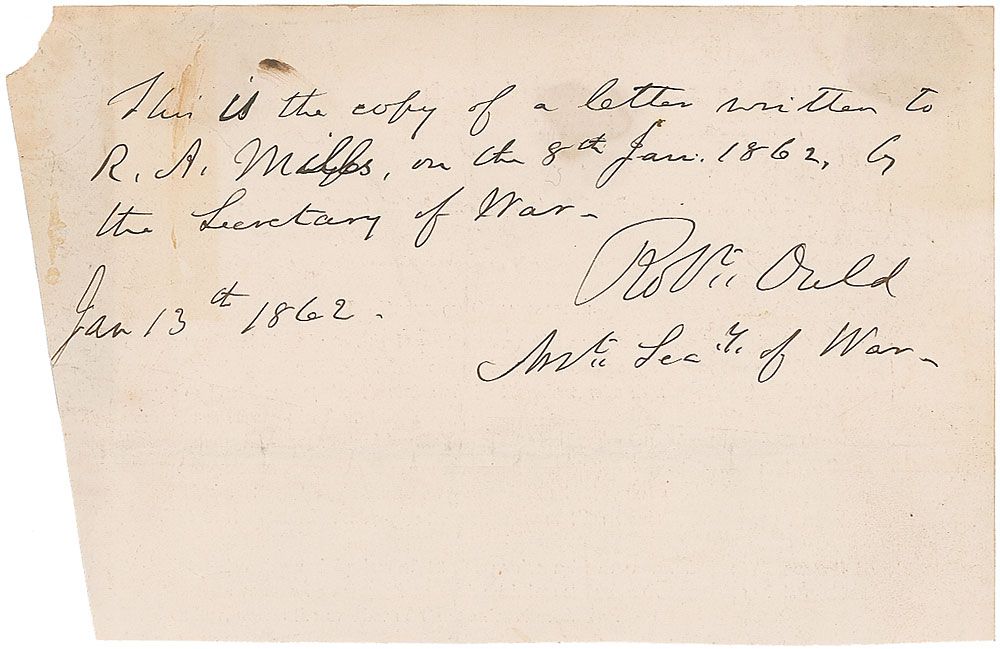 This is the copy of a letter written to
R. A. Mills, on the 8th Jan. 1862, by
the Secretary of War -
Robt. Ould
Jan 13th 1862.
Asst. Secy. of War -